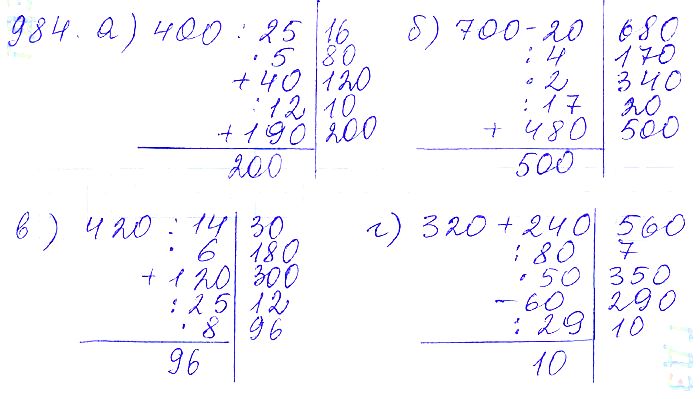 984. а) 400 : 25 | 16
· 5 | 80
+ 40 | 120
: 12 | 10
+ 190 | 200
200
б) 700 - 20 | 680
: 4 | 170
· 2 | 340
: 17 | 20
+ 480 | 500
500
в) 420 : 14 | 30
· 6 | 180
+ 120 | 300
: 25 | 12
· 8 | 96
96
г) 320 + 240 | 560
: 80 | 7
· 50 | 350
- 60 | 290
: 29 | 10
10